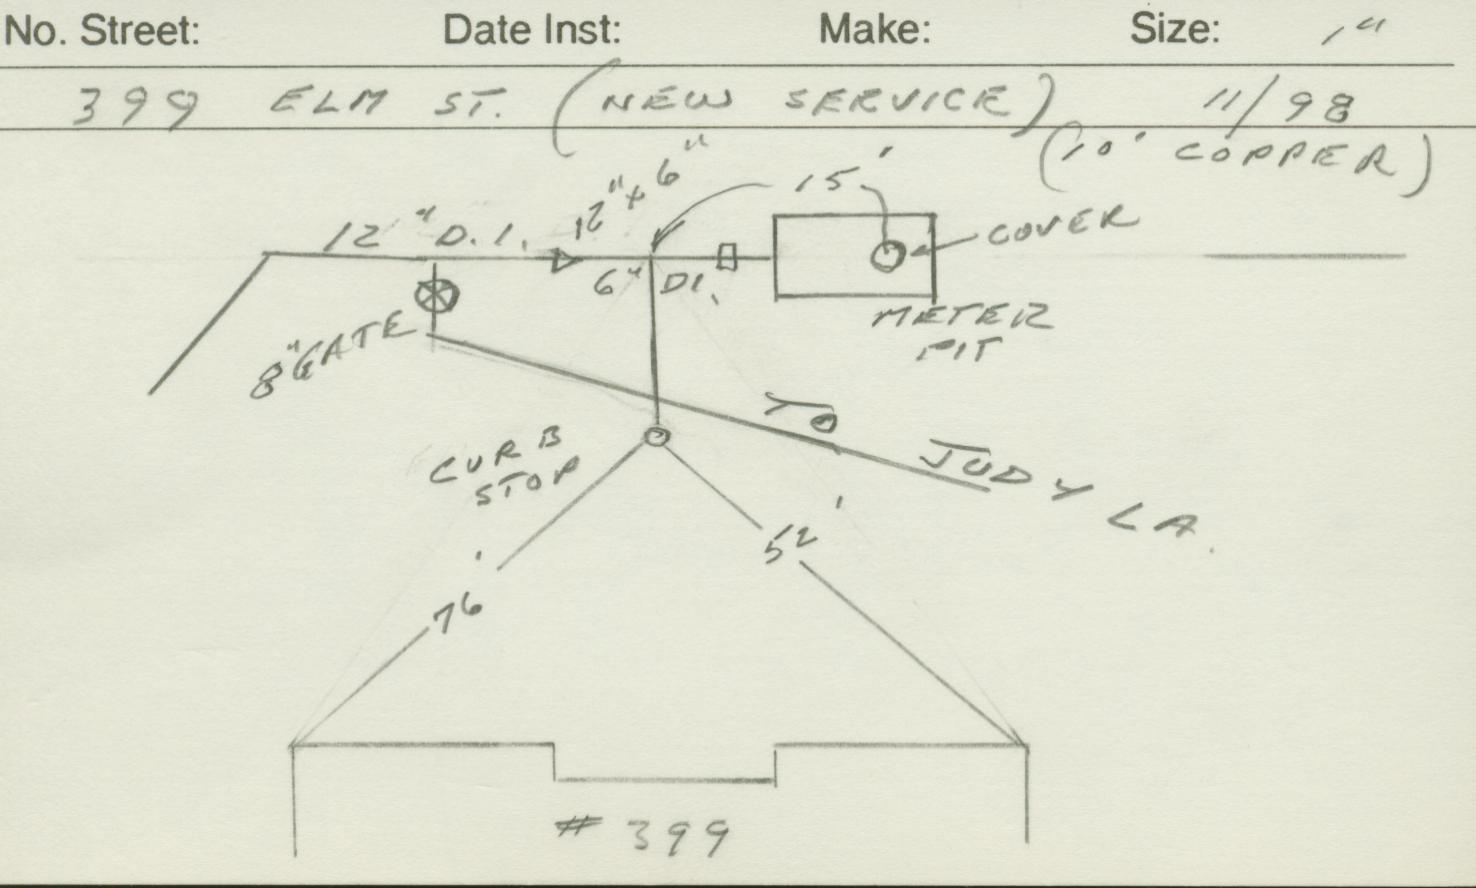 No. Street: Date Inst: Make: Size: 1"
399 ELM ST. (NEW SERVICE) 11/98
(10' COPPER)
12" D.I. 12" x 6" 15'
COVER
6" DI.
METER
PIT
8" GATE
CURB
STOP
JUDY LA.
52'
76'
# 399